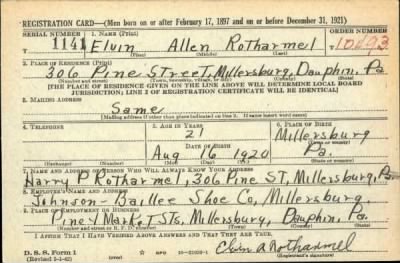 REGISTRATION CARD—(Men born on or after February 17, 1897 and on or before December 31, 1921)
SERIAL NUMBER 1. NAME (Print) ORDER NUMBER
1141 Elvin Allen Rotharmel 10693
(First) (Middle) (Last)
2. PLACE OF RESIDENCE (Print)
306 Pine Street, Millersburg, Dauphin, Pa
(Number and street) (Town, township, village, or city) (County) (State)
[THE PLACE OF RESIDENCE GIVEN ON THE LINE ABOVE WILL DETERMINE LOCAL BOARD
JURISDICTION; LINE 2 OF REGISTRATION CERTIFICATE WILL BE IDENTICAL]
3. MAILING ADDRESS
Same
[Mailing address if other than place indicated on line 2. If same insert word same]
4. TELEPHONE 5. AGE IN YEARS 6. PLACE OF BIRTH
21 Millersburg
DATE OF BIRTH (Town or county)
Aug 16 1920 Pa.
(Exchange) (Number) (Mo.) (Day) (Yr.) (State or country)
7. NAME AND ADDRESS OF PERSON WHO WILL ALWAYS KNOW YOUR ADDRESS
Harry P Rotharmel, 306 Pine ST, Millersburg, Pa
8. EMPLOYER'S NAME AND ADDRESS
Johnson-Baillee Shoe Co, Millersburg.
9. PLACE OF EMPLOYMENT OR BUSINESS
Pine & Market STs, Millersburg, Dauphin, Pa.
(Number and street or R. F. D. number) (Town) (County) (State)
I AFFIRM THAT I HAVE VERIFIED ABOVE ANSWERS AND THAT THEY ARE TRUE.
D. S. S. Form 1
(Revised 1-1-42) GPO 16—21630-1 Elvin A Rotharmel